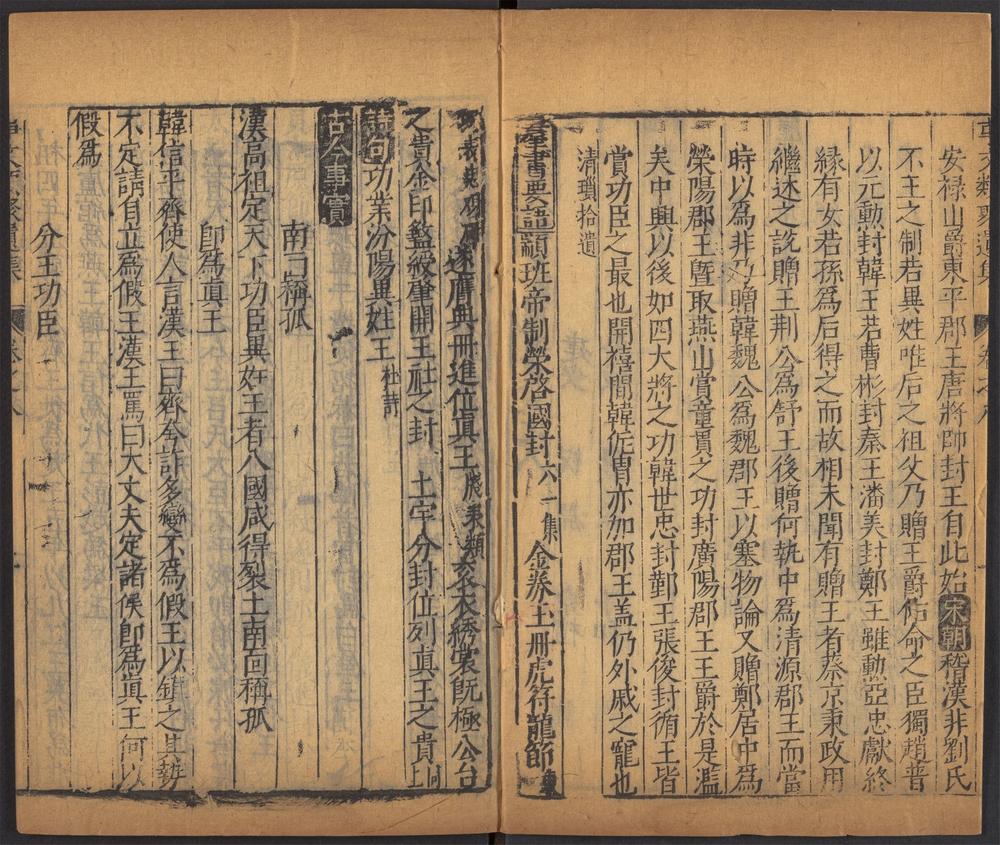 安禄山爵東平郡王唐將帥封王自此始宋朝稽漢非劉氏
不王之制若異姓唯后之祖父乃贈王爵佑命之臣獨趙普
以元勳封韓王若曹彬封秦王潘美封鄭王雖勳亞忠獻終
縁有女若孫爲后得之而故相未聞有贈王者蔡京秉政用
繼述之說贈王荆公爲舒王後贈何執中爲清源郡王而當
時以爲非乃贈韓魏公爲魏郡王以塞物論又贈鄭居中爲
榮陽郡王曁取燕山賞童貫之功封廣陽郡王王爵於是濫
矣中興以後如四大將之功韓世忠封鄿王張俊封循王皆
賞功臣之最也開禧間韓侂胄亦加郡王盖仍外戚之寵也
清瑣拾遺
羣書要語顓班帝制榮啓國封六一集金券玉冊虎符龍節
遂膺典冊進位眞王衮衣綉裳旣極公台
之貴金印盭綬肇開王社之封 土宇分封位列眞王之貴同上
詩句功業汾陽異姓王杜詩
古今事實
南面稱孤
漢高祖定天下功臣異姓王者八國咸得裂土南面稱孤
卽爲眞王
韓信平齊使人言漢王曰齊夸詐多變不爲假王以鎮之其勢
不定請自立爲假王漢王罵曰大丈夫定諸侯卽爲眞王何以
假爲
分王功臣